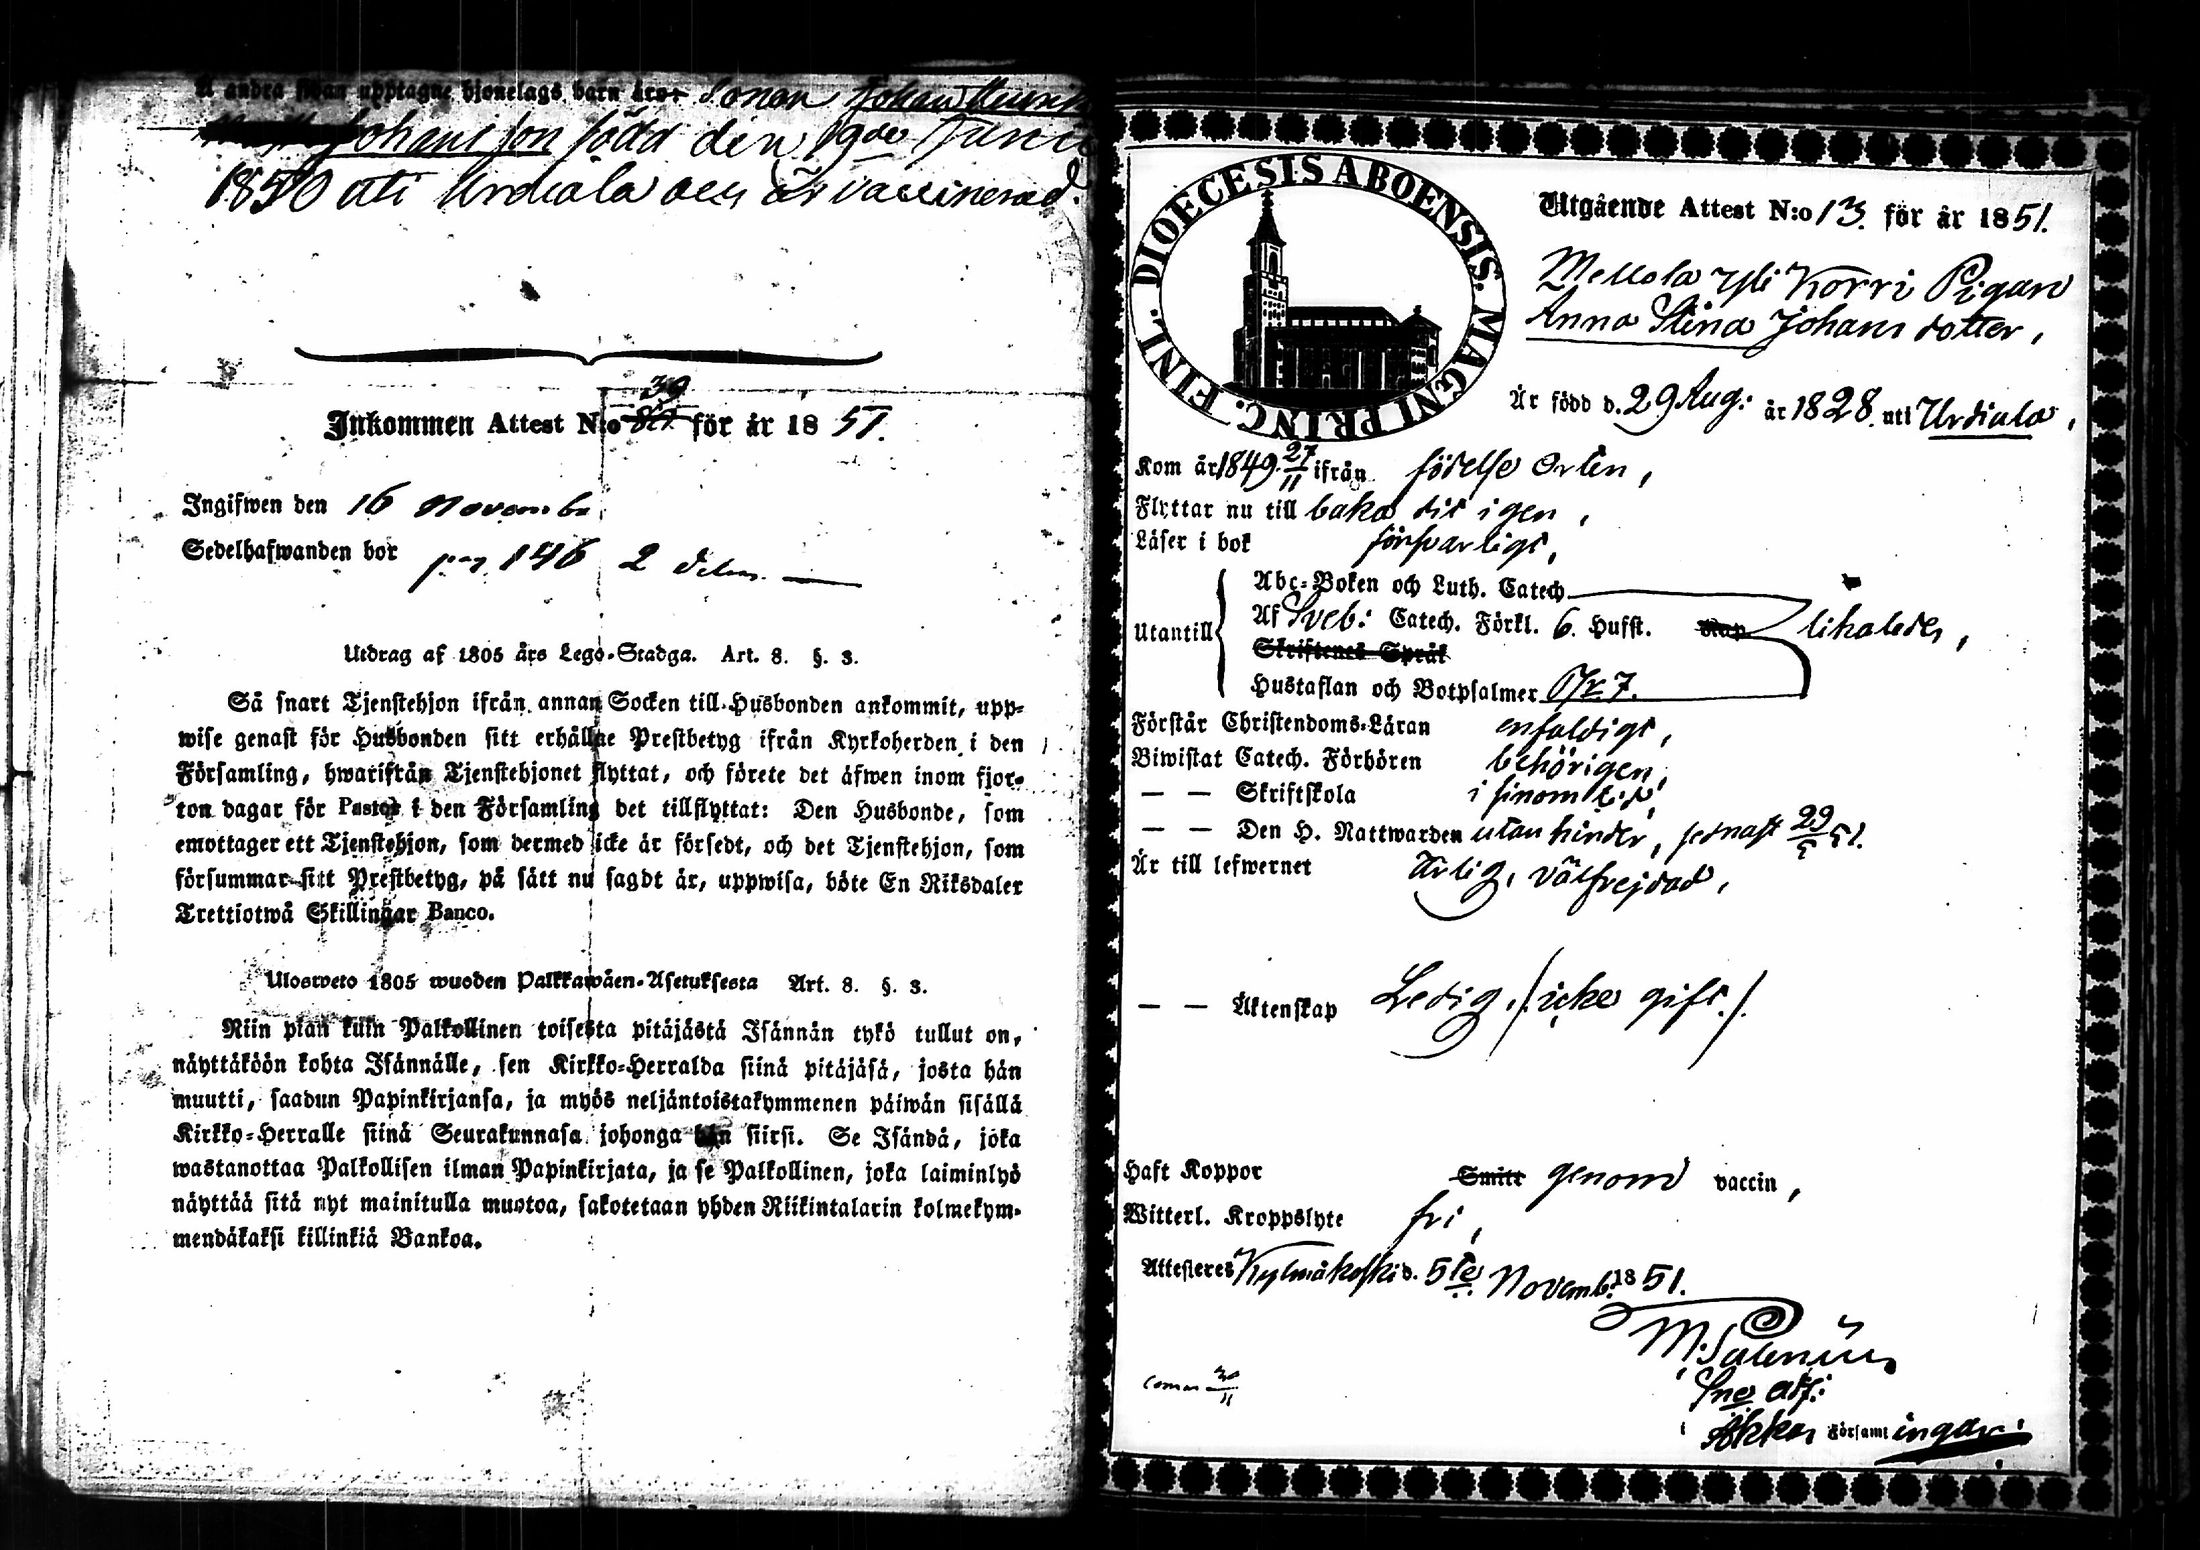 å andra sidan upptagne hjonelags barn äro Sonen Johan Henrik
Johansson född den 19de Junii
1850 uti Urdiala och är vaccinerad.
Inkommen Attest N:o 39 för år 1851.
Ingifwen den 16 Novembr
Sedelhafwanden bor pag. 146 2 delen
Utdrag af 1805 års Lego-Stadga. Art. 8. §. 3.
Så snart Tjenstehjon ifrån annan Socken till Husbonden ankommit, upp-
wise genast för Husbonden sitt erhållne Prestbetyg ifrån Kyrkoherden i den
Församling, hwarifrån Tjenstehjonet flyttat, och förete det äfwen inom fjor-
ton dagar för Pastor i den Församling det tillflyttat: Den Husbonde, som
emottager ett Tjenstehjon, som dermed icke är försedt, och det Tjenstehjon, som
försummar sitt Prestbetyg, på sätt nu sagdt är, uppwisa, böte En Riksdaler
Trettiotwå Skillingar Banco.
Ulosweto 1805 wuoden Palkkawäen-Asetuksesta Art. 8. §. 3.
Niin pian kuin Palkollinen toisesta pitäjästä Isännän tykö tullut on,
näyttäköön kohta Isännälle, sen Kirkko-Herralda siinä pitäjäsä, josta hän
muutti, saadun Papinkirjansa, ja myös neljäntoistakymmenen päiwän sisällä
Kirkko-Herralle siinä Seurakunnasa johonga hän siirsi. Se Isändä, joka
wastanottaa Palkollisen ilman Papinkirjata, ja se Palkollinen, joka laiminlyö
näyttää sitä nyt mainitulla muotoa, sakotetaan yhden Riikintalarin kolmekym-
mendäkaksi killinkiä Bankoa.
DIOECESIS ABOENSIS. MAGNI PRINC. FINL.
Utgående Attest N:o 13. för år 1851.
Mellola Yli Korri Pigan
Anna Stina Johansdotter,
Är född d. 29 Aug: år 1828. uti Urdiala,
Kom år 1849 27/11 ifrån födelse Orten,
Flyttar nu till baka dit igen,
Läser i bok försvarligt,
Utantill
Abc-Boken och Luth. Catech.
Af Sveb: Catech. Förkl. 6. Hufst. Kap likaledes,
Skriftenes Språk
Hustaflan och Botpsalmer 7.
Förstår Christendoms-Läran enfaldigt,
Biwistat Catech. Förhören behörigen,
— — Skriftskola i sinom tid,
— — Den H. Nattwarden utan hinder, sednast 29/5 51.
Är till lefwernet Ärlig, välfrejdad,
— — Äktenskap Ledig, /: icke gift :/.
Haft Koppor Smitt genom vaccin,
Witterl. Kroppslyte fri,
Attesteres Kylmäkoski d. 5te Novemb. 1851.
M. Salenius
Sne adj:
i Akkas Församlingar.